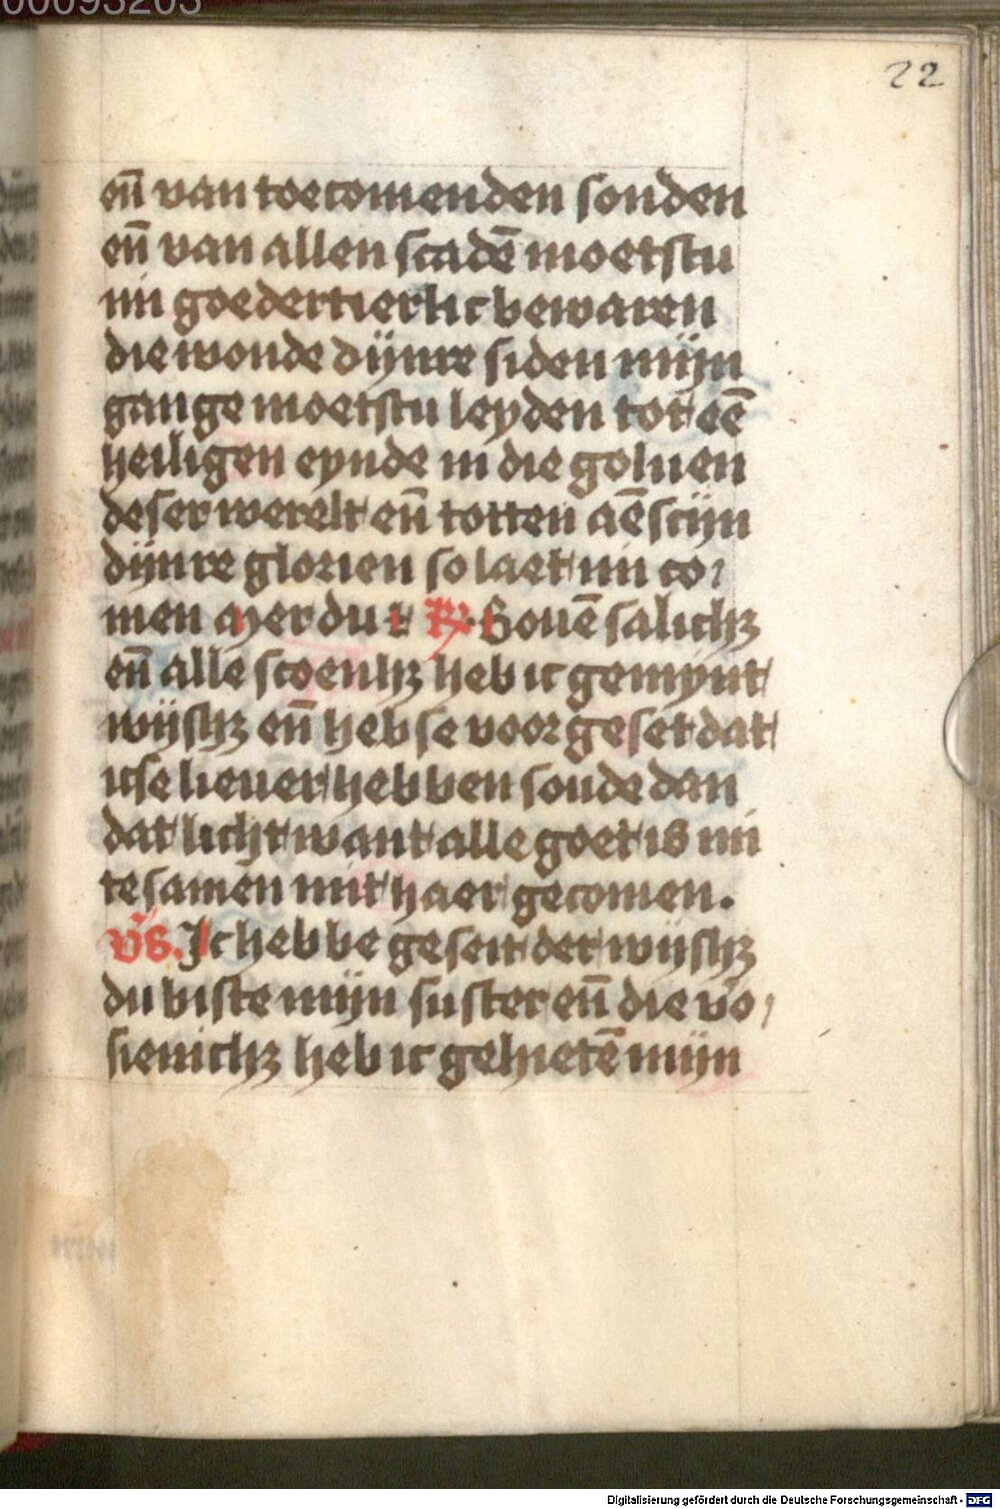 00093203
22
eñ van toecomenden sonden
eñ van allen scadē moetstu
mi goedertierlic bewaren
die wonde dijnre siden mijn
gange moetstu leyden tot eē
heiligen eynde in die goluen
deser werelt eñ totten aēscijn
dijnre glorien so laet mi co⸗
men Mer du t R̷ Bouē salichꝫ
eñ alle scoenhꝫ heb ic gemynt
wijshꝫ eñ heb se voor geset dat
icse lieuer hebben soude dan
dat licht want alle goet is mi
te samen mit haer gecomen.
v̄s. Ic hebbe geseit der wijshꝫ
du biste mijn suster eñ die vo⸗
sienichꝫ heb ic gehietē mijn
Digitalisierung gefördert durch die Deutsche Forschungsgemeinschaft - DFG